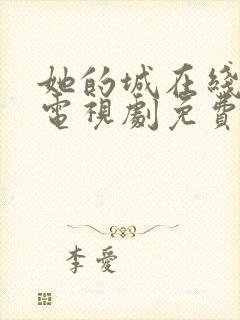 她的城在綫
電視劇免費
李愛